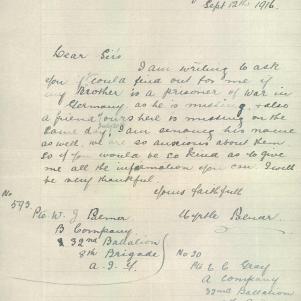 Sept 12th 1916.
Dear Sirs
I am writing to ask
you if could find out for me if
my Brother is a prisoner of war in
Germany as he is missing & also
a friend of ours here is missing on the
same day, I am sending his name
as well, we are so anxious about them.
So if you would be so kind as to give
me all the information you can I will
be very thankful.
Yours faithfull
Myrtle Benar.
No
593
Pte W. J. Benar
B Company
32nd Battalion
8th Brigade
A. I. F.
No 30
Pte L C Gray
A Company
32nd Battalion